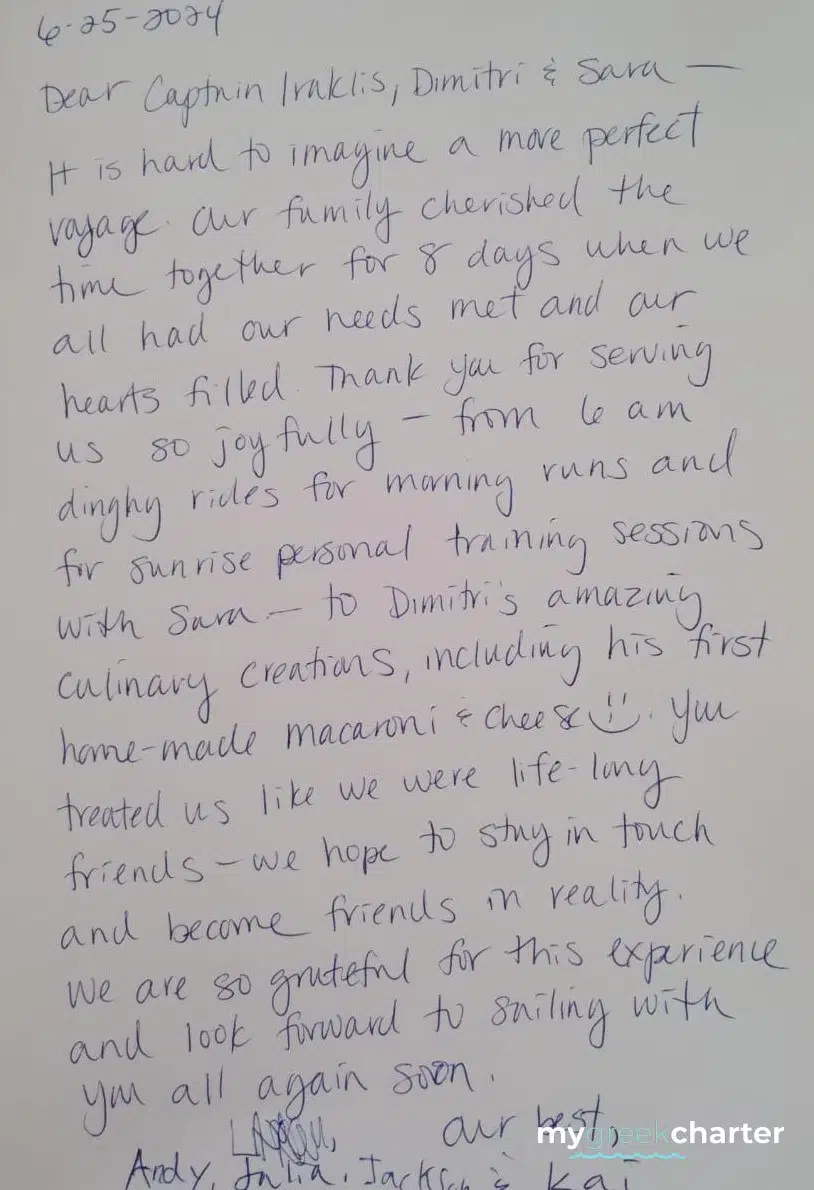 6-25-2024
Dear Captain Iraklis, Dimitri & Sara —
It is hard to imagine a more perfect
voyage. Our family cherished the
time together for 8 days when we
all had our needs met and our
hearts filled. Thank you for serving
us so joyfully – from 6 am
dinghy rides for morning runs and
for sunrise personal training sessions
with Sara — to Dimitri's amazing
culinary creations, including his first
home-made macaroni & cheese :). You
treated us like we were life-long
friends – we hope to stay in touch
and become friends in reality.
We are so grateful for this experience
and look forward to sailing with
you all again soon.
Our best,
mygreekcharter
Andy, Julia, Jackson & Kai